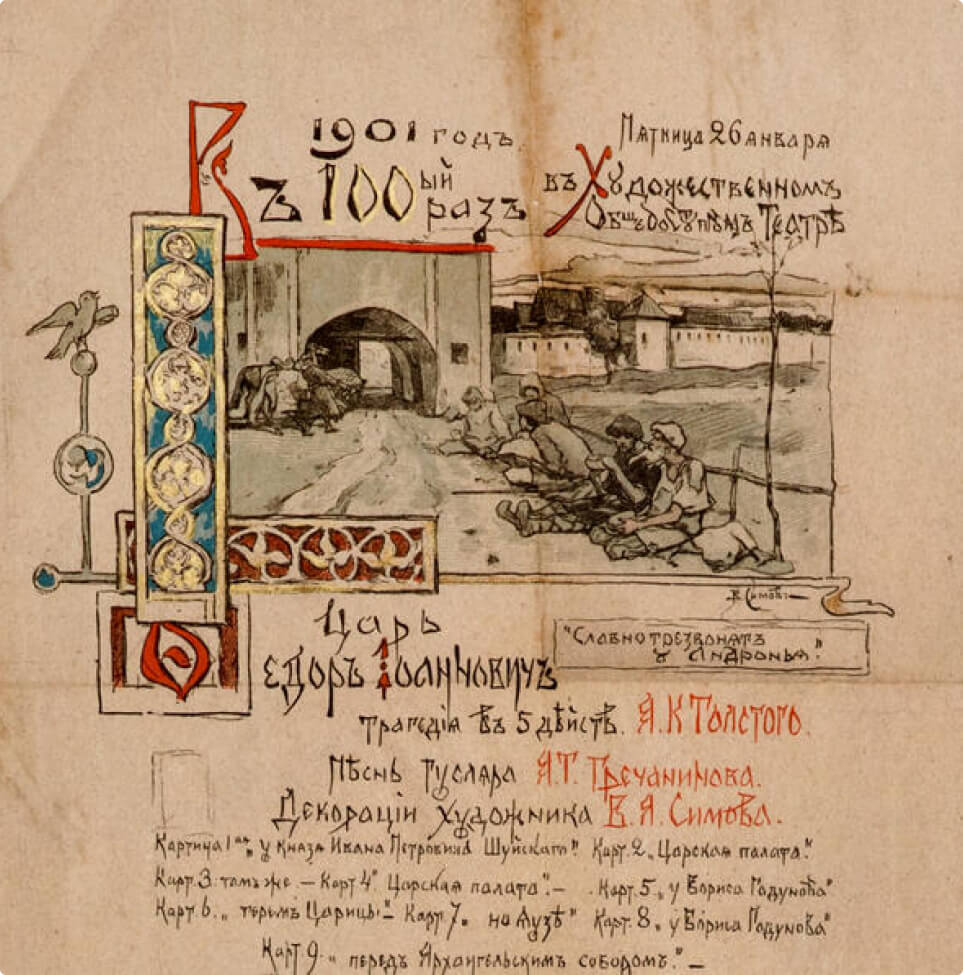 1901 годъ.
Пятница 26 января
Въ 100ый разъ
въ Художественномъ
Общедоступномъ Театрѣ
В. Симовъ
Царь
Ѳедоръ Іоанновичъ
"Славно трезвонятъ
у Андронья."
трагедія въ 5 дѣйств. А. К Толстого.
Пѣснь гусляра А.Т. Гречанинова.
Декораціи художника В. А. Симова.
Картина 1ая „у князя Ивана Петровича Шуйскаго" Карт. 2 „Царская палата."
Карт. 3. тамъ же. — Карт 4" Царская палата". — Карт. 5 „у Бориса Годунова"
Карт. 6. „теремъ Царицы" — Карт 7 „на Яузѣ" Карт. 8 „у Бориса Годунова"
Карт. 9 — „передъ Архангельскимъ соборомъ." —